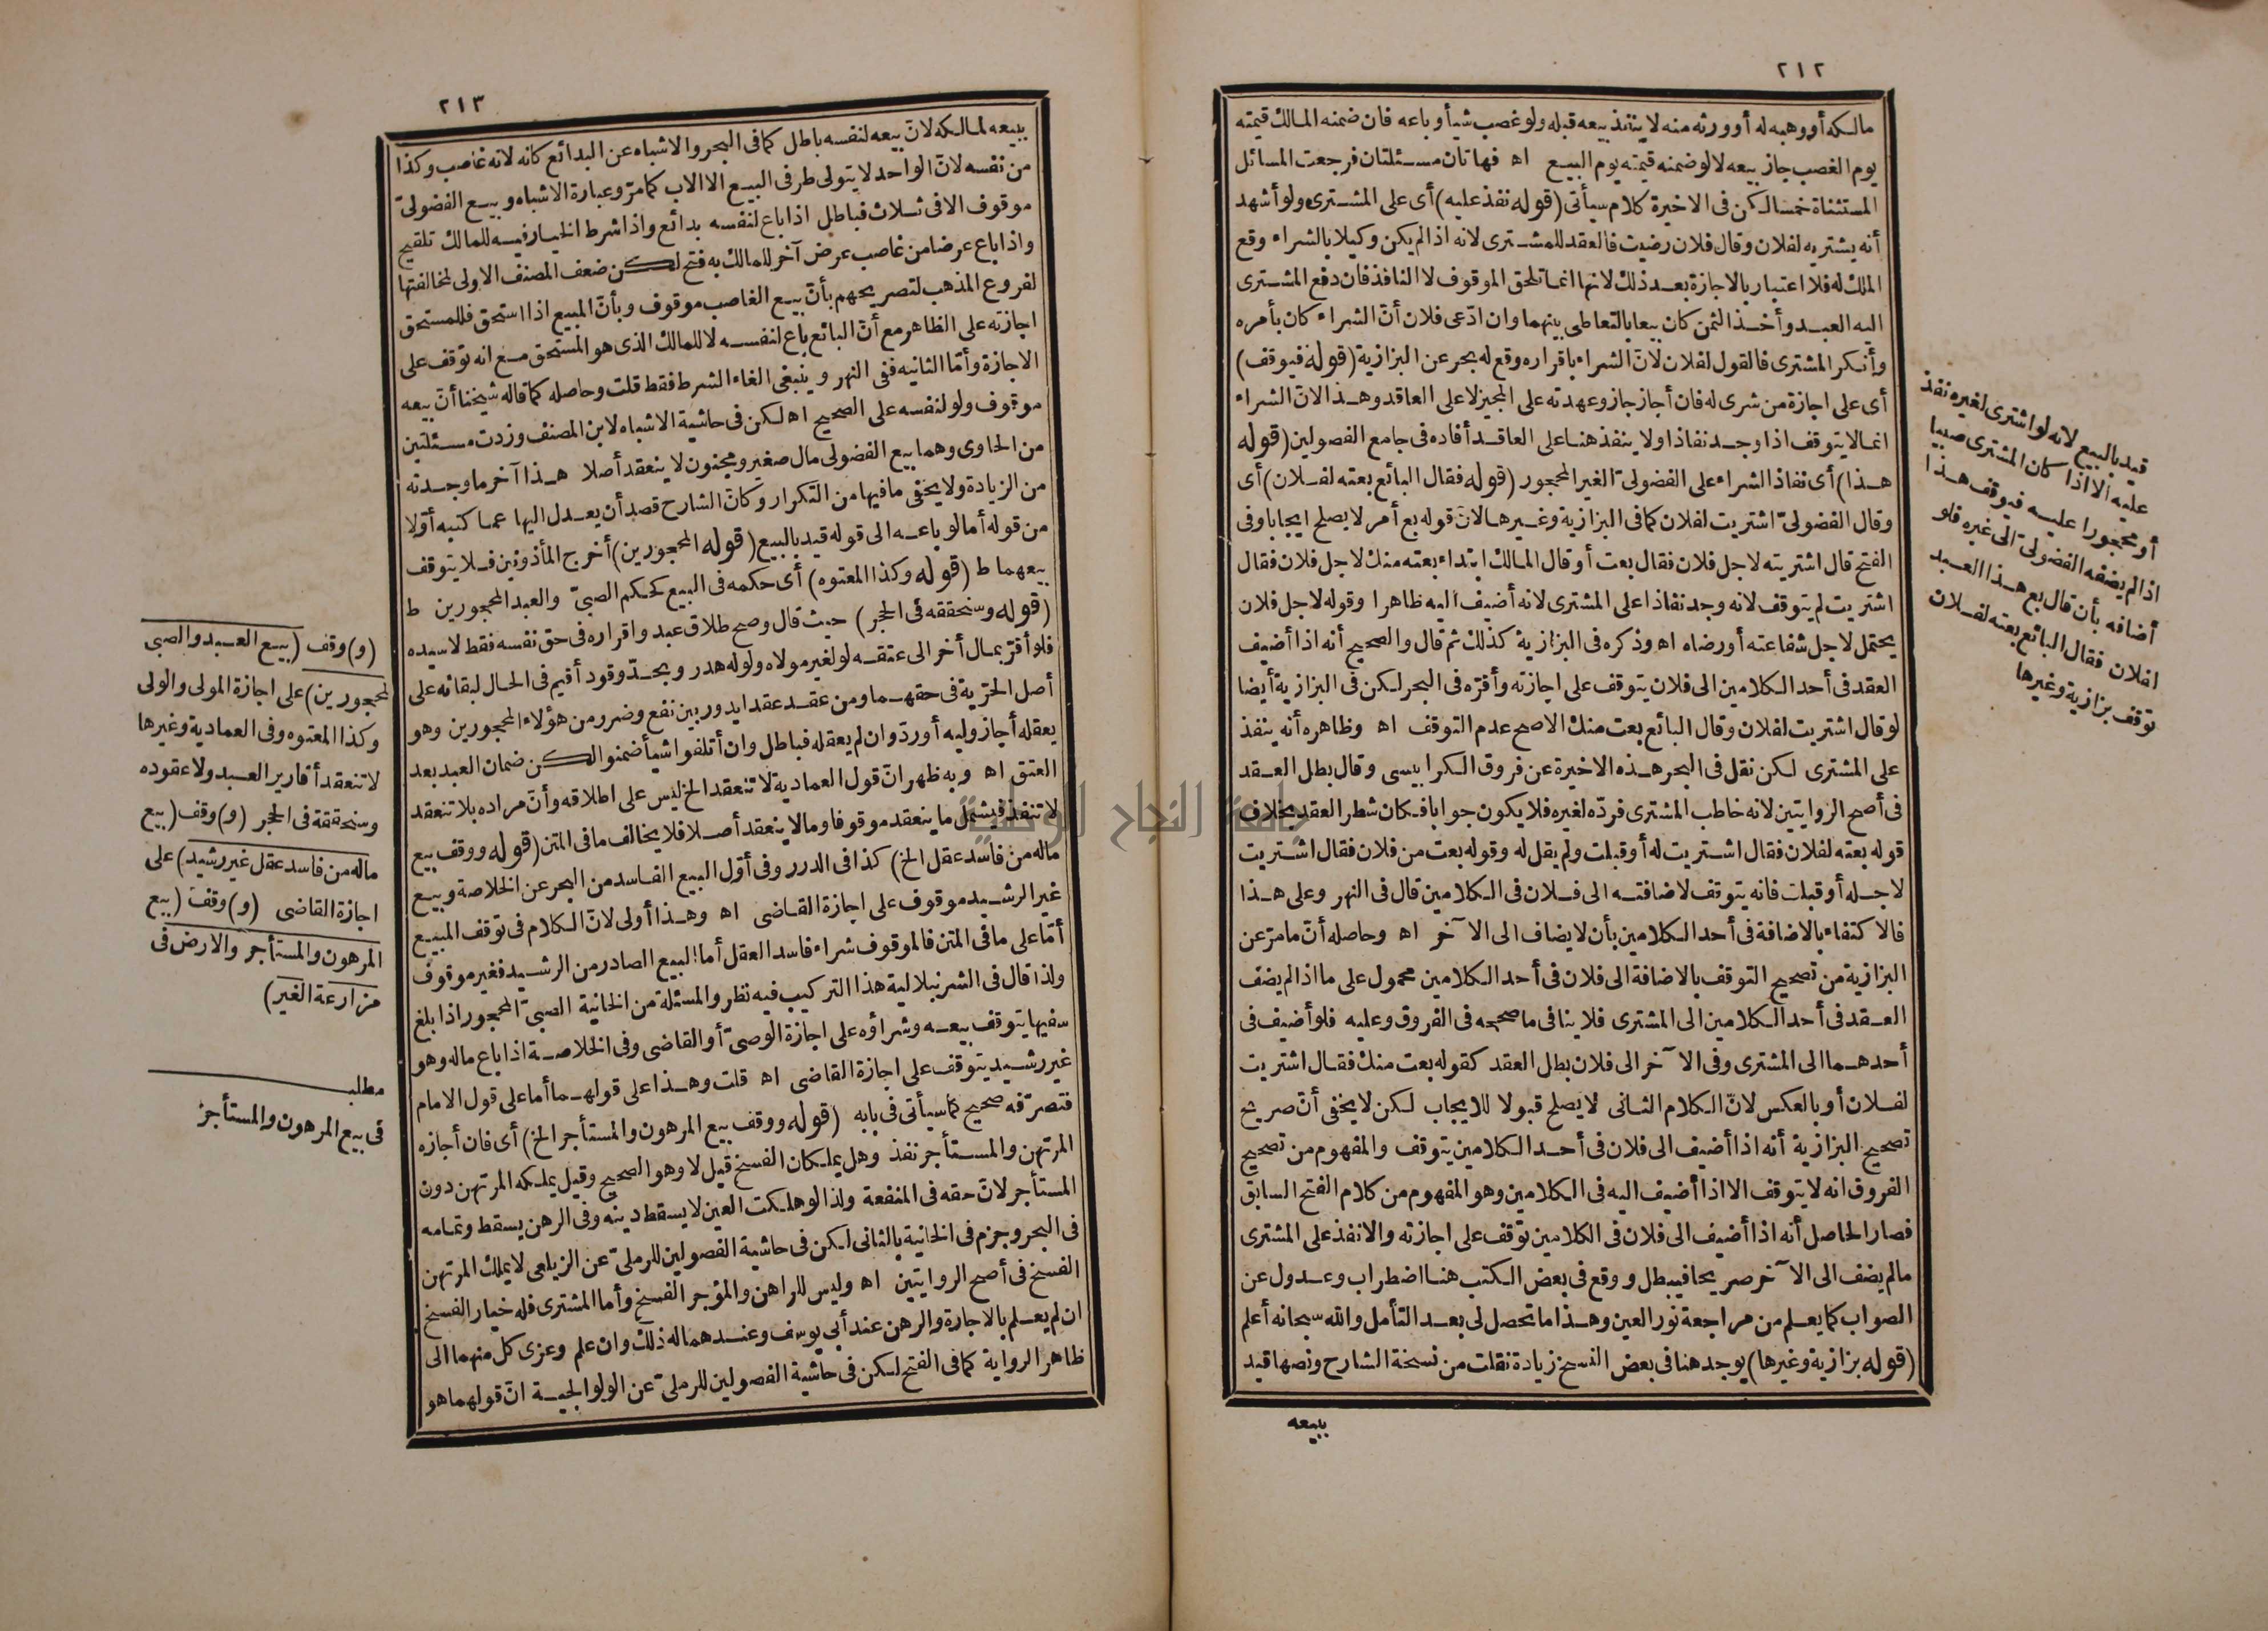 ٢١٢
مالكه أو وهبه له أو ورثه منه لا ينفذ بيعه قبله ولو غصب شيأ وباعه فان ضمنه المالك قيمته
يوم الغصب جاز بيعه لا لو ضمنه قيمته يوم البيع اه فهاتان مسئلتان فرجعت المسائل
المستثناة خمسا لكن فى الاخيرة كلام سيأتى (قوله نفذ عليه) أى على المشترى ولو أشهد
أنه يشتريه لفلان وقال فلان رضيت فالعقد للمشترى لانه اذا لم يكن وكيلا بالشراء وقع
الملك له فلا اعتبار بالاجازة بعد ذلك لانها انما تلحق الموقوف لا النافذ فان دفع المشترى
اليه العبد وأخذ الثمن كان بيعا بالتعاطى بينهما وان ادّعى فلان أنّ الشراء كان بأمره
وأنكر المشترى فالقول لفلان لانّ الشراء باقراره وقع له بحر عن البزازية (قوله فيوقف)
أى على اجازة من شرى له فان أجاز جاز وعهدته على المجيز لا على العاقد وهذا لانّ الشراء
انما لا يتوقف اذا وجد نفاذا ولا ينفذ هنا على العاقد أفاده فى جامع الفصولين (قوله
هذا) أى نفاذ الشراء على الفضولىّ الغير المحجور (قوله فقال البائع بعته لفلان) أى
وقال الفضولىّ اشتريت لفلان كما فى البزازية وغيرها لانّ قوله بع أمر لا يصلح ايجابا وفى
الفتح قال اشتريته لاجل فلان فقال بعت أو قال المالك ابتداء بعته منك لاجل فلان فقال
اشتريت لم يتوقف لانه وجد نفاذا على المشترى لانه أضيف اليه ظاهرا وقوله لاجل فلان
يحتمل لاجل شفاعته أو رضاه اه وذكره فى البزازية كذلك ثم قال والصحيح أنه اذا أضيف
العقد فى أحد الكلامين الى فلان يتوقف على اجازته وأقرّه فى البحر لكن فى البزازية أيضا
لو قال اشتريت لفلان وقال البائع بعت منك الاصح عدم التوقف اه وظاهره أنه ينفذ
على المشترى لكن نقل فى البحر هذه الاخيرة عن فروق الكرابيسى وقال بطل العقد
فى أصح الروايتين لانه خاطب المشترى فردّه لغيره فلا يكون جوابا فكان شطر العقد بخلاف
قوله بعته لفلان فقال اشتريت له أو قبلت ولم يقل له وقوله بعت من فلان فقال اشتريت
لاجله أو قبلت فانه يتوقف لاضافته الى فلان فى الكلامين قال فى النهر وعلى هذا
فالاكتفاء بالاضافة فى أحد الكلامين بأن لا يضاف الى الآخر اه وحاصله أنّ ما مرّ عن
البزازية من تصحيح التوقف بالاضافة الى فلان فى أحد الكلامين محمول على ما اذا لم يضف
العقد فى أحد الكلامين الى المشترى فلا ينافى ما صححه فى الفروق وعليه فلو أضيف فى
أحدهما الى المشترى وفى الآخر الى فلان بطل العقد كقوله بعت منك فقال اشتريت
لفلان أو بالعكس لانّ الكلام الثانى لا يصلح قبولا للايجاب لكن لا يخفى أنّ صريح
تصحيح البزازية أنه اذا أضيف الى فلان فى أحد الكلامين يتوقف والمفهوم من تصحيح
الفروق انه لا يتوقف الا اذا أضيف اليه فى الكلامين وهو المفهوم من كلام الفتح السابق
فصار الحاصل أنه اذا أضيف الى فلان فى الكلامين توقف على اجازته والا نفذ على المشترى
ما لم يضف الى الآخر صريحا فيبطل ووقع فى بعض الكتب هنا اضطراب وعدول عن
الصواب كما يعلم من مراجعة نور العين وهذا ما تحصل لى بعد التأمل والله سبحانه أعلم
(قوله بزازية وغيرها) يوجد هنا فى بعض النسخ زيادة نقلت من نسخة الشارح ونصها قيد
بيعه
قيد بالبيع لانه لو اشترى لغيره نفذ
عليه الا اذا كان المشترى صبيا
أو محجورا عليه فيوقف هذا
اذا لم يضفه الفضولىّ الى غيره فلو
أضافه بأن قال بع هذا العبد
لفلان فقال البائع بعته لفلان
توقف بزازية وغيرها
٢١٣
ببيعه لمالكه لانّ بيعه لنفسه باطل كما فى البحر والاشباه عن البدائع كانه لانه غاصب وكذا
من نفسه لانّ الواحد لا يتولى طرفى البيع الا الاب كما مرّ وعبارة الاشباه وبيع الفضولىّ
موقوف الا فى ثلاث فباطل اذا باع لنفسه بدائع واذا شرط الخيار فيه للمالك تلقيح
واذا باع عرضا من غاصب عرض آخر للمالك به فتح لكن ضعف المصنف الاولى لمخالفتها
لفروع المذهب لتصريحهم بأنّ بيع الغاصب موقوف وبأنّ المبيع اذا استحق فللمستحق
اجازته على الظاهر مع أنّ البائع باع لنفسه لا للمالك الذى هو المستحق مع انه توقف على
الاجازة وأمّا الثانيه ففى النهر وينبغى الغاء الشرط فقط قلت وحاصله كما قاله شيخنا أنّ بيعه
موقوف ولو لنفسه على الصحيح اه لكن فى حاشية الاشباه لابن المصنف وزدت مسئلتين
من الحاوى وهما بيع الفضولى مال صغير ومجنون لا ينعقد أصلا هذا آخر ما وجدته
من الزيادة ولا يخفى ما فيها من التكرار وكانّ الشارح قصد أن يعدل اليها عما كتبه أوّلا
من قوله أما لو باعه الى قوله قيد بالبيع (قوله المحجورين) أخرج المأذونين فلا يتوقف
بيعهما ط (قوله وكذا المعتوه) أى حكمه فى البيع كحكم الصبىّ والعبد المحجورين ط
(قوله وسنحققه فى الحجر) حيث قال وصح طلاق عبد واقراره فى حق نفسه فقط لا سيده
فلو أقرّ بمال أخر الى عتقه لو لغير مولاه ولو له هدر وبحدّ وقود أقيم فى الحال لبقائه على
أصل الحرّية فى حقهما ومن عقد عقدا يدور بين نفع وضر من هؤلاء المحجورين وهو
يعقله أجاز وليه أو ردّ وان لم يعقله فباطل وان أتلفوا شيأ ضمنوا لكن ضمان العبد بعد
العتق اه وبه ظهر انّ قول العمادية لا تنعقد الخ ليس على اطلاقه وأنّ مراده بلا تنعقد
لا تنفذ فيشمل ما ينعقد موقوفا وما لا ينعقد أصلا فلا يخالف ما فى المتن (قوله ووقف بيع
ماله من فاسد عقل الخ) كذا فى الدرر وفى أوّل البيع الفاسد من البحر عن الخلاصة وبيع
غير الرشيد موقوف على اجازة القاضى اه وهذا أولى لانّ الكلام فى توقف المبيع
أمّا على ما فى المتن فالموقوف شراء فاسد العقل أما البيع الصادر من الرشيد فغير موقوف
ولذا قال فى الشرنبلالية هذا التركيب فيه نظر والمسئلة من الخانية الصبىّ المحجور اذا بلغ
سفيها يتوقف بيعه وشراؤه على اجازة الوصىّ أو القاضى وفى الخلاصة اذا باع ماله وهو
غير رشيد يتوقف على اجازة القاضى اه قلت وهذا على قولهما أما على قول الامام
فتصرّفه صحيح كما سيأتى فى بابه (قوله ووقف بيع المرهون والمستأجر الخ) أى فان أجازه
المرتهن والمستأجر نفذ وهل يملكان الفسخ قيل لا وهو الصحيح وقيل يملكه المرتهن دون
المستأجر لانّ حقه فى المنفعة ولذا لو هلكت العين لا يسقط دينه وفى الرهن يسقط وتمامه
فى البحر وجزم فى الخانية بالثانى لكن فى حاشية الفصولين للرملىّ عن الزيلعى لا يملك المرتهن
الفسخ فى أصح الروايتين اه وليس للراهن والمؤجر الفسخ وأما المشترى فله خيار الفسخ
ان لم يعلم بالاجارة والرهن عند أبى يوسف وعندهما له ذلك وان علم وعزى كل منهما الى
ظاهر الرواية كما فى الفتح لكن فى حاشية الفصولين للرملىّ عن الولوالجية انّ قولهما هو
(و) وقف (بيع العبد والصبى
المحجورين) على اجازة المولى والولى
وكذا المعتوه وفى العمادية وغيرها
لا تنعقد أقارير العبد ولا عقوده
وسنحققه فى الحجر (و) وقف (بيع
ماله من فاسد عقل غير رشيد) على
اجازة القاضى (و) وقف (بيع
المرهون والمستأجر والارض فى
مزارعة الغير)
مطلب
فى بيع المرهون والمستأجر
جامعة النجاح الوطنية